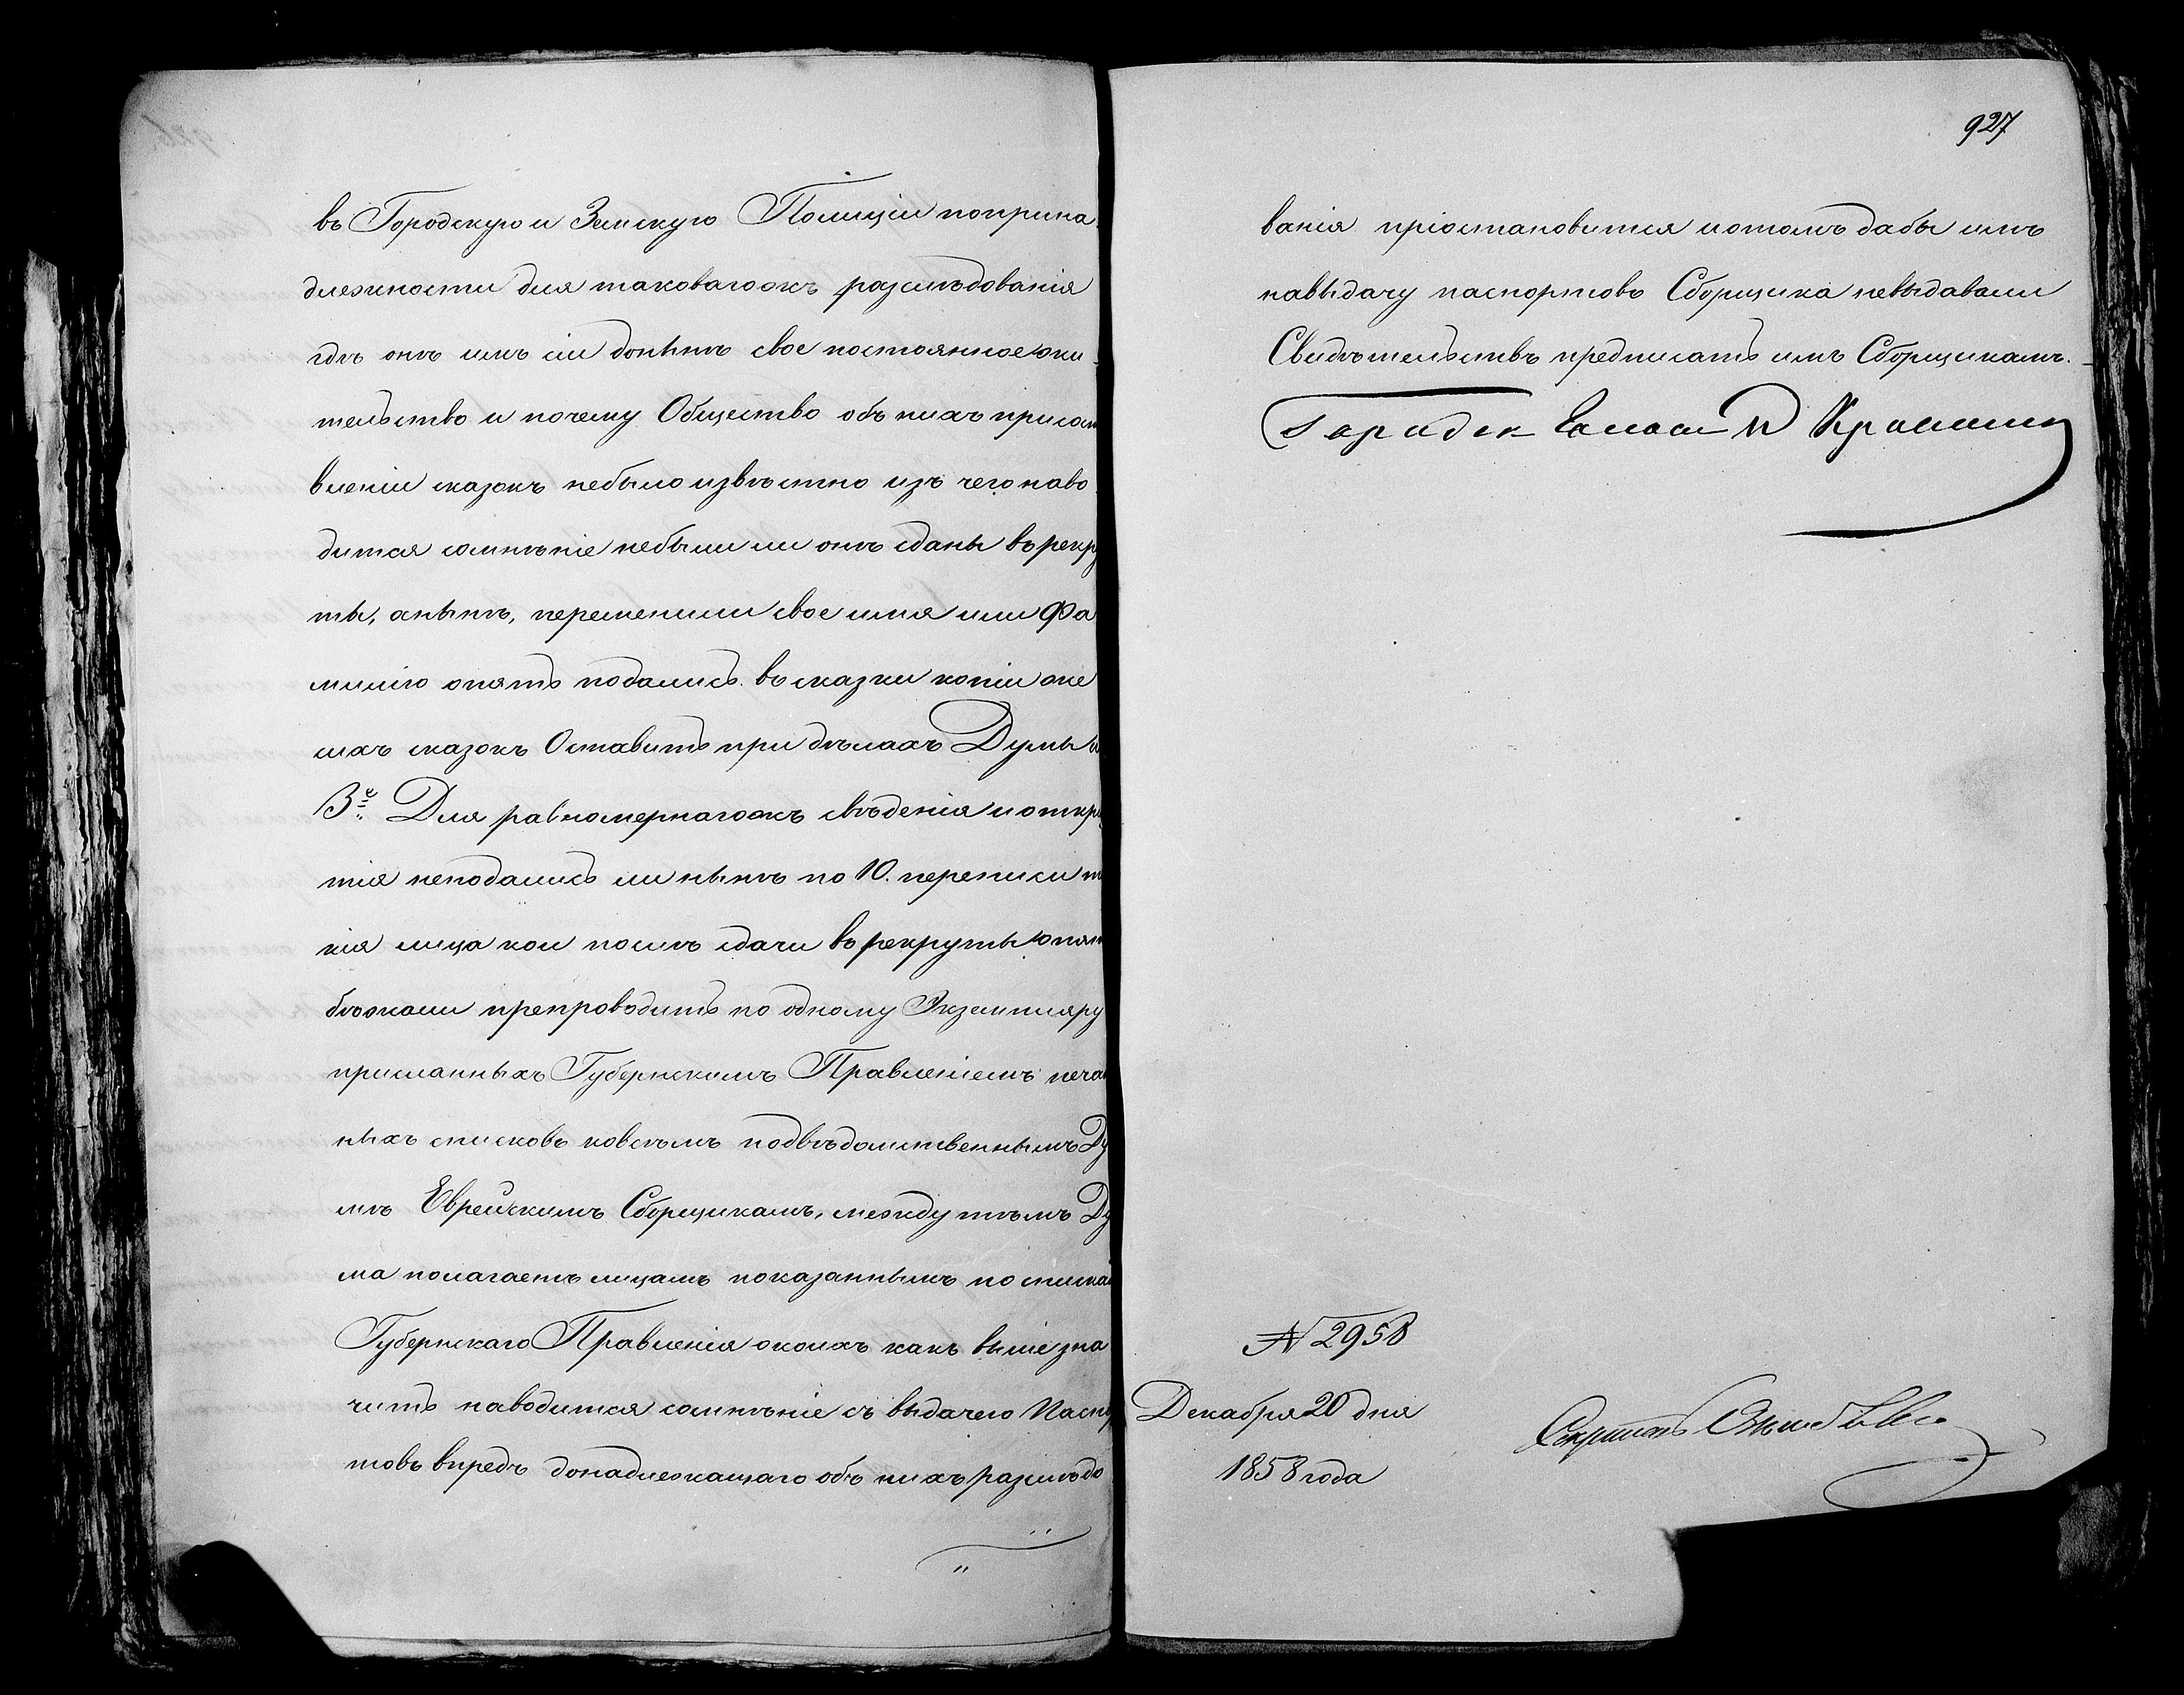 въ Городскую и Земскую Полицiи поприна
длежности для таковагожъ разслѣдованія
гдѣ онѣ имѣли донынѣ свое постоянное жи
тельство и почему Общество объ нихъ присост
вленіи сказокъ небыло извѣстно изъ чего наво
дится сомнѣніе небыли ли онѣ сданы въ рекр
ты, анынѣ, переменили свое имя или Фа
милію опять подались въ сказки копіи же
сихъ сказокъ Оставить при дѣлахъ Думы и
3е Для равномернагожъ свѣденія и откры
тія неподались ли нынѣ по 10. переписи т
кія лица кои послѣ сдачи въ рекруты опят
бѣжали препроводить по одному Экземпляру
присланныхъ Губернскимъ Правленіемъ печат
ныхъ списковъ ковсѣмъ подвѣдомственнымъ Ду
мѣ Еврейскимъ Сборщикамъ, между тѣмъ Ду
ма полагаетъ лицамъ показаннымъ по спискам
Губернскаго Правленія окоихъ какъ выше зна
чить наводится сомнѣніе съ выдачею Паспор
товъ впредь донадлежащаго объ нихъ разслѣдо
927
ванія пріостановится и отомъ дабы имъ
навыдачу паспортовъ Сборщика невыдавали
Свидѣтельствъ предписать имъ Сборщикамъ.
№ 2958
Декабря 20 дня
1858 года